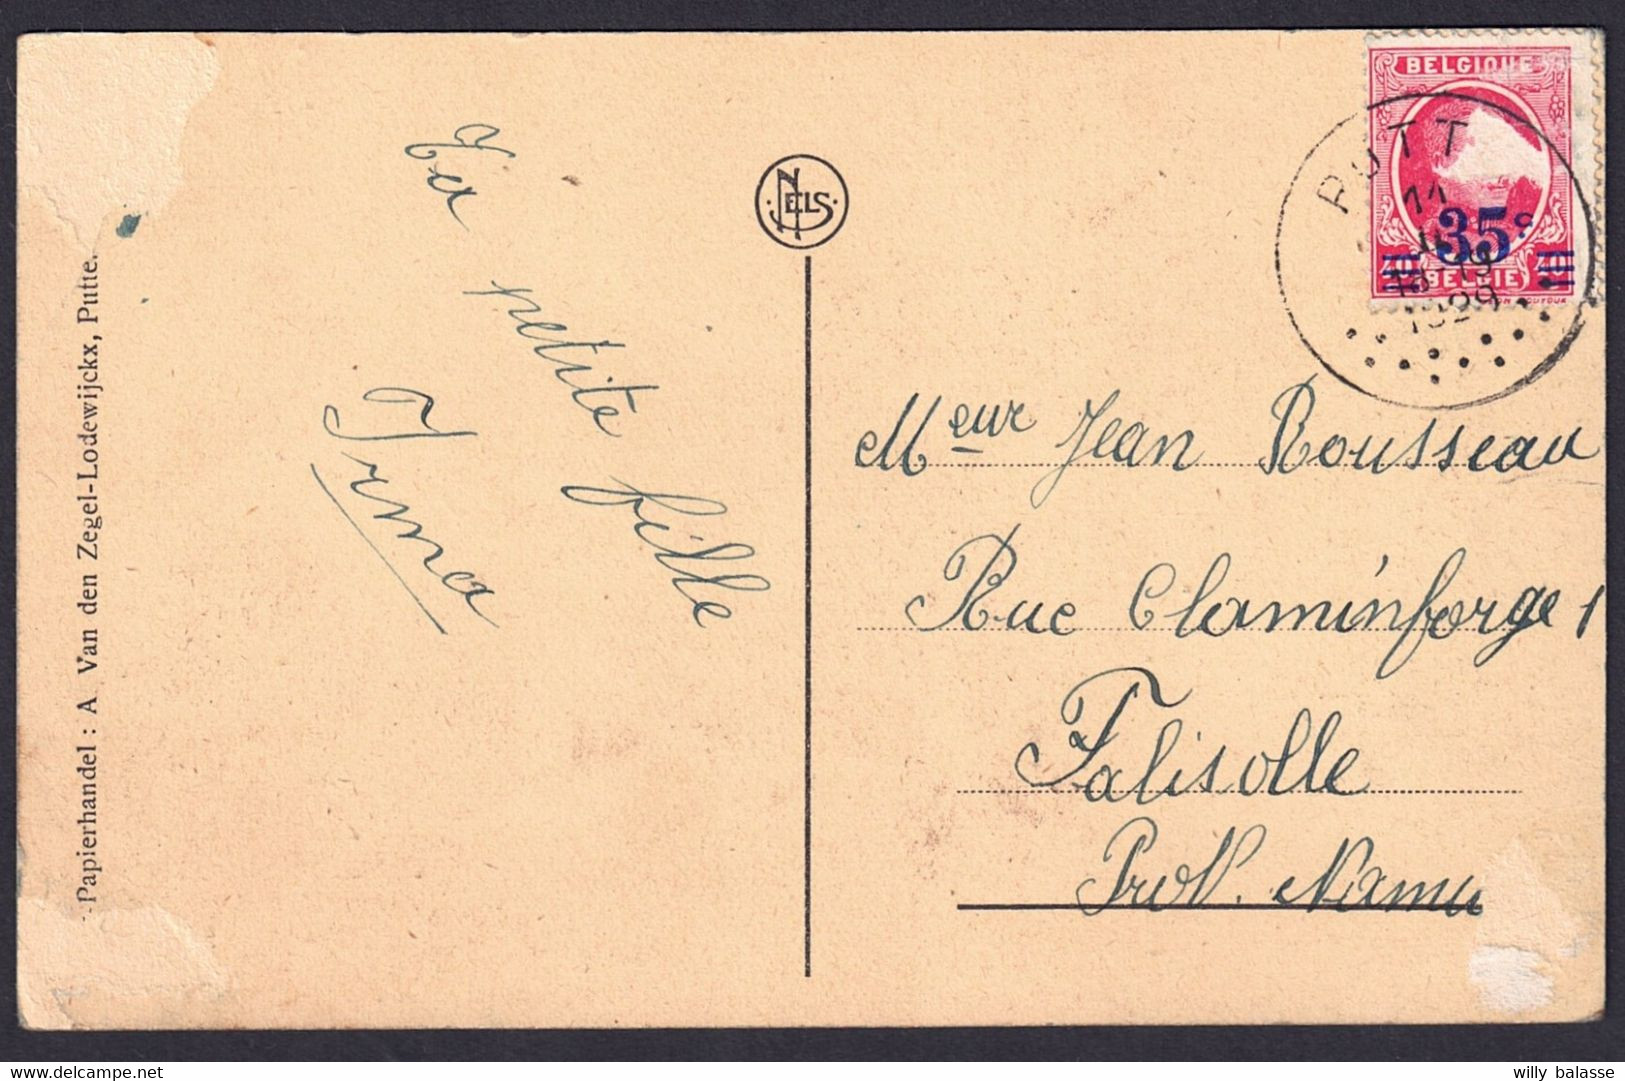 Papierhandel : A Van den Zegel-Lodewijckx, Putte.
Ta petite fille
Irma
NELS
BELGIQUE
35c
40 BELGIE 40
PUTT
11
18-19
1929
Meur Jean Rousseau
Rue Claminforge 1
Falisolle
Prov. Namur
willy balasse